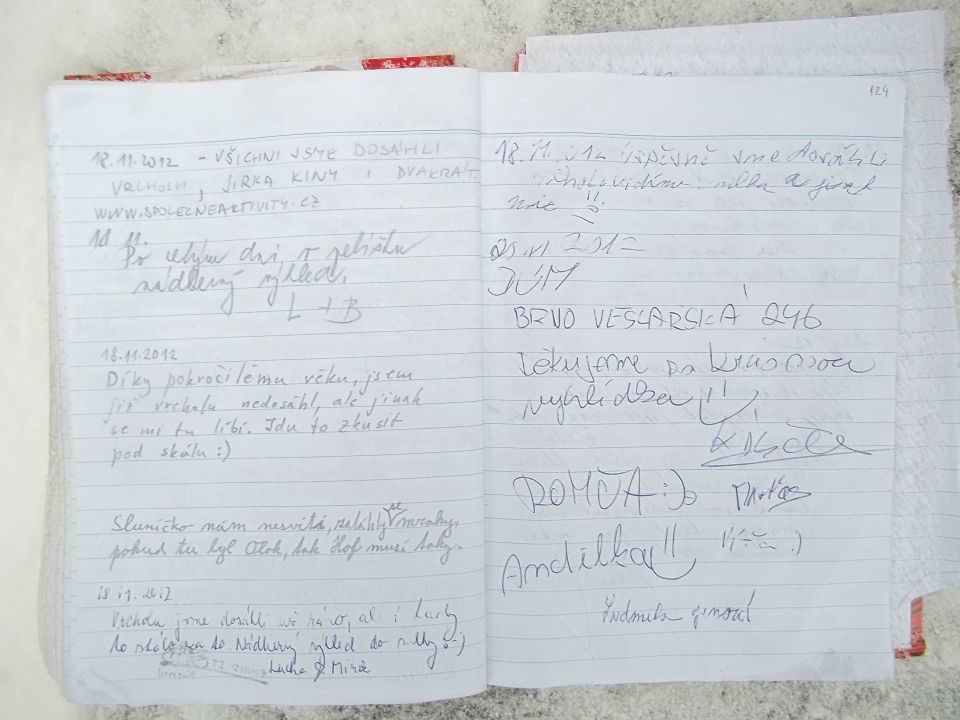 18.11.2012 - VŠICHNI JSME DOSÁHLI
VRCHOLU, JIRKA KINY I DVAKRÁT.
WWW.SPOLECNEAKTIVITY.CZ
18 11.
Po celým dni v
nádherný výhled.
L + B
18.11.2012
Díky pokročilému věku, jsem
již vrcholu nedosáhl, ale jinak
se mi tu líbí. Jdu to zkusit
pod skálu :)
Sluníčko nám nesvítá, zatáhly se mraky,
pokud tu byl Olok, tak Hof musí taky.
18 11. 2012
Vrcholu jsme dosáhli už ráno, al i tady
to stálo za to. Nádherný výhled do mlhy :-)
Lucka & Mirek
124
18. 11. úspěšně sme dosáhli
mlha a jinak
nic
2012
DŮM
BRVO VESLARSKÁ 246
Děkujeme za krásnou
vyhlídku
ROMČA :)
Matěs
Andilka !!
Ludmila